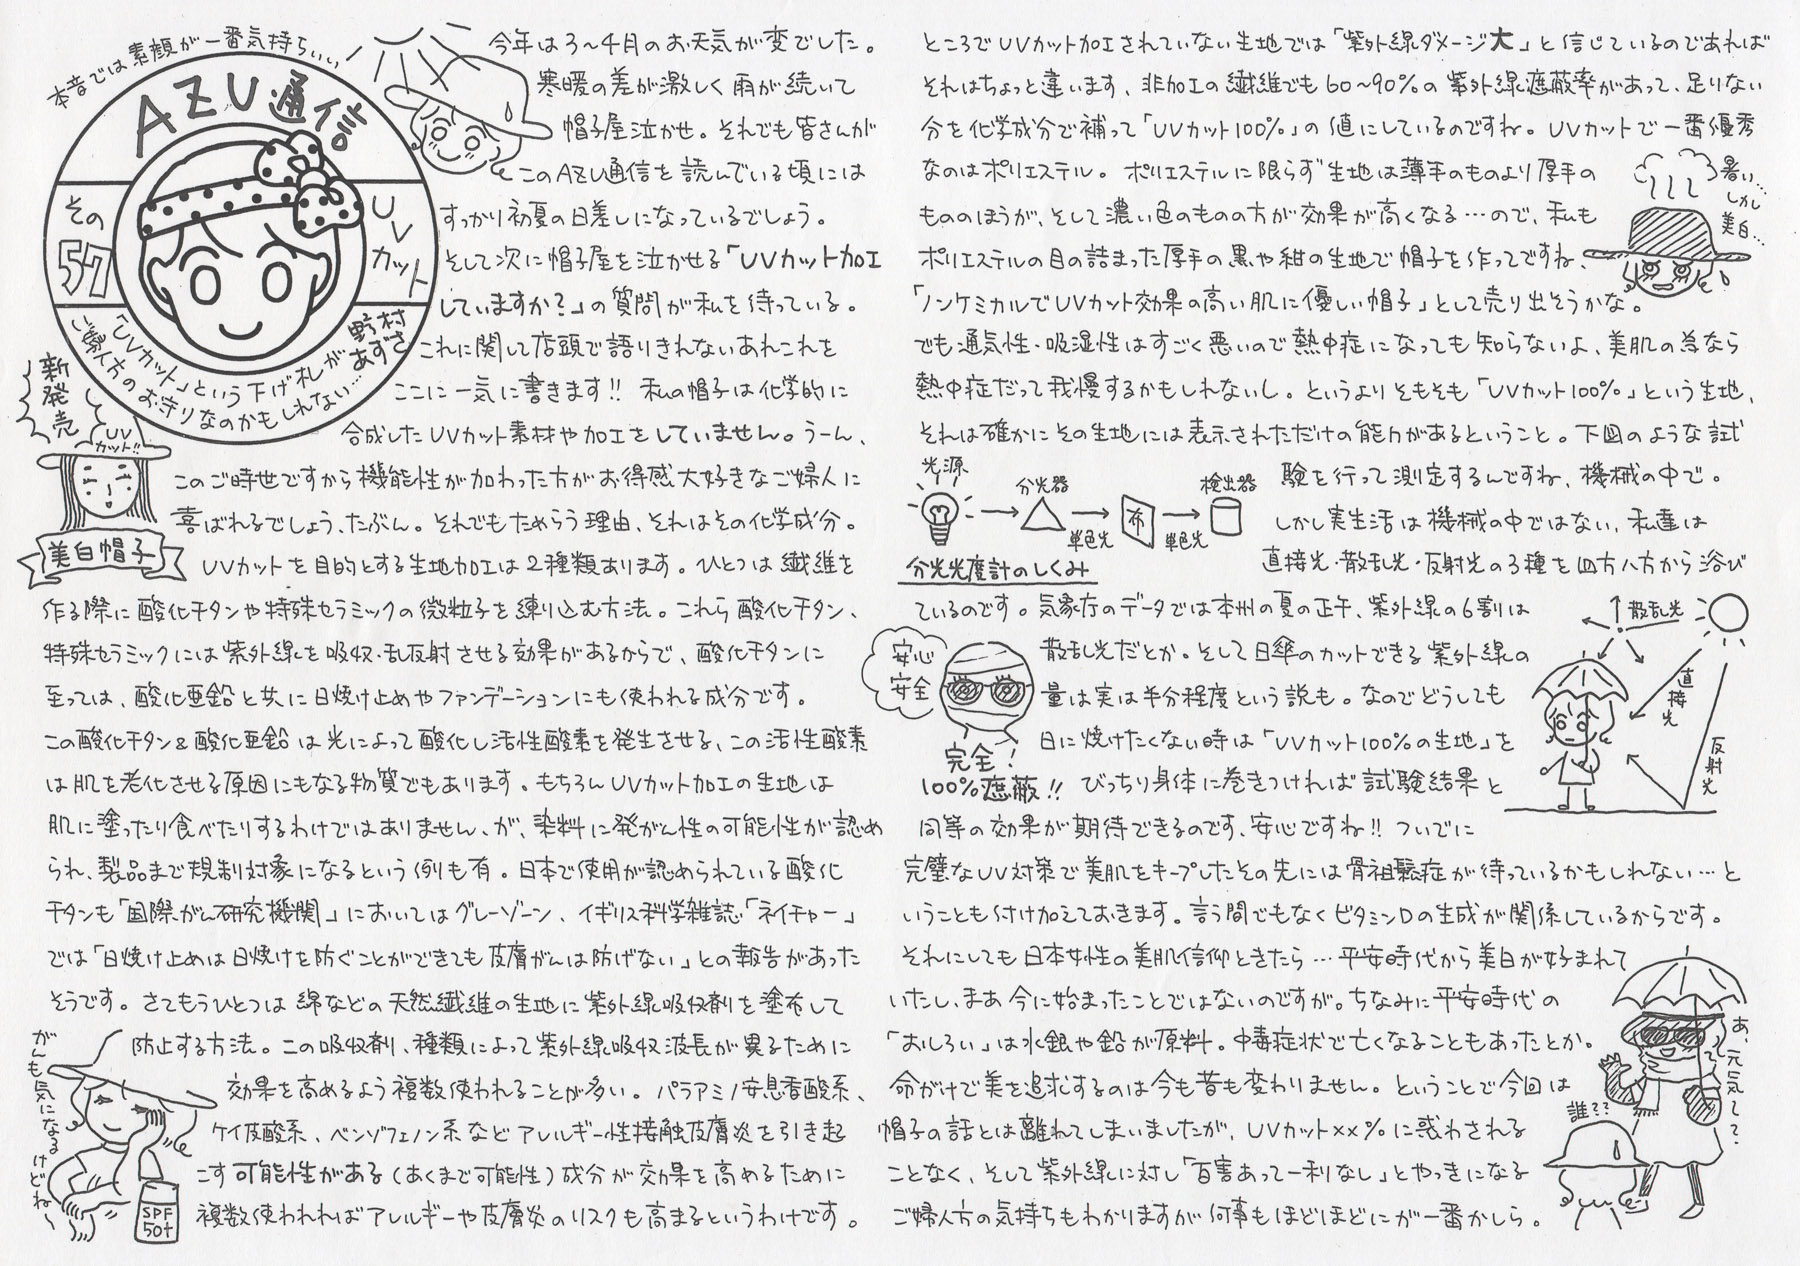 本音では素顔が一番気持ちいい
AZU通信
その57
UVカット
野村あずさ
「UVカット」という下げ札が
ご婦人方のお守りなのかもしれない…
今年は3〜4月のお天気が変でした。
寒暖の差が激しく雨が続いて
帽子屋泣かせ。それでも皆さんが
このAZU通信を読んでいる頃には
すっかり初夏の日差しになっているでしょう。
そして次に帽子屋を泣かせる「UVカット加工
していますか？」の質問が私を待っている。
これに関して店頭で語りきれないあれこれを
ここに一気に書きます!! 私の帽子は化学的に
合成したUVカット素材や加工をしていません。うーん、
このご時世ですから機能性が加わった方がお得感大好きなご婦人に
喜ばれるでしょう、たぶん。それでもためらう理由、それはその化学成分。
UVカットを目的とする生地加工は2種類あります。ひとつは繊維を
作る際に酸化チタンや特殊セラミックの微粒子を練り込む方法。これら酸化チタン、
特殊セラミックには紫外線を吸収・乱反射させる効果があるからで、酸化チタンに
至っては、酸化亜鉛と共に日焼け止めやファンデーションにも使われる成分です。
この酸化チタン＆酸化亜鉛は光によって酸化し活性酸素を発生させる、この活性酸素
は肌を老化させる原因にもなる物質でもあります。もちろんUVカット加工の生地は
肌に塗ったり食べたりするわけではありません、が、染料に発がん性の可能性が認め
られ、製品まで規制対象になるという例も有。日本で使用が認められている酸化
チタンも「国際がん研究機関」においてはグレーゾーン、イギリス科学雑誌「ネイチャー」
では「日焼け止めは日焼けを防ぐことができても皮膚がんは防げない」との報告があった
そうです。さてもうひとつは綿などの天然繊維の生地に紫外線吸収剤を塗布して
防止する方法。この吸収剤、種類によって紫外線吸収波長が異るために
効果を高めるよう複数使われることが多い。パラアミノ安息香酸系、
ケイ皮酸系、ベンゾフェノン系などアレルギー性接触皮膚炎を引き起
こす可能性がある(あくまで可能性)成分が効果を高めるために
複数使われればアレルギーや皮膚炎のリスクも高まるというわけです。
新発売
UVカット!!
美白帽子
がんも気になるけどね〜
SPF
50+
ところでUVカット加工されていない生地では「紫外線ダメージ大」と信じているのであれば
それはちょっと違います、非加工の繊維でも60〜90%の紫外線遮蔽率があって、足りない
分を化学成分で補って「UVカット100%」の値にしているのですね。UVカットで一番優秀
なのはポリエステル。ポリエステルに限らず生地は薄手のものより厚手の
もののほうが、そして濃い色のものの方が効果が高くなる…ので、私も
ポリエステルの目の詰まった厚手の黒や紺の生地で帽子を作ってですね、
「ノンケミカルでUVカット効果の高い肌に優しい帽子」として売り出そうかな。
でも通気性・吸湿性はすごく悪いので熱中症になっても知らないよ、美肌の為なら
熱中症だって我慢するかもしれないし。というよりそもそも「UVカット100%」という生地、
それは確かにその生地には表示されただけの能力があるということ。下図のような試
験を行って測定するんですね、機械の中で。
しかし実生活は機械の中ではない、私達は
直接光・散乱光・反射光の3種を四方八方から浴び
ているのです。気象庁のデータでは本州の夏の正午、紫外線の6割は
散乱光だとか。そして日傘のカットできる紫外線の
量は実は半分程度という説も。なのでどうしても
日に焼けたくない時は「UVカット100%の生地」を
びっちり身体に巻きつければ試験結果と
同等の効果が期待できるのです、安心ですね!! ついでに
完璧なUV対策で美肌をキープしたその先には骨祖鬆症が待っているかもしれない…と
いうことも付け加えておきます。言う間でもなくビタミンDの生成が関係しているからです。
それにしても日本女性の美肌信仰ときたら…平安時代から美白が好まれて
いたし、まあ今に始まったことではないのですが。ちなみに平安時代の
「おしろい」は水銀や鉛が原料。中毒症状で亡くなることもあったとか。
命がけで美を追求するのは今も昔も変わりません。ということで今回は
帽子の話とは離れてしまいましたが、UVカット××%に惑わされる
ことなく、そして紫外線に対し「百害あって一利なし」とやっきになる
ご婦人方の気持ちもわかりますが何事もほどほどにが一番かしら。
暑い…
しかし
美白…
光源
分光器
単色光
布
単色光
検出器
分光光度計のしくみ
安心
安全
完全！
100%遮蔽!!
散乱光
直接光
反射光
あ、元気って？
誰??